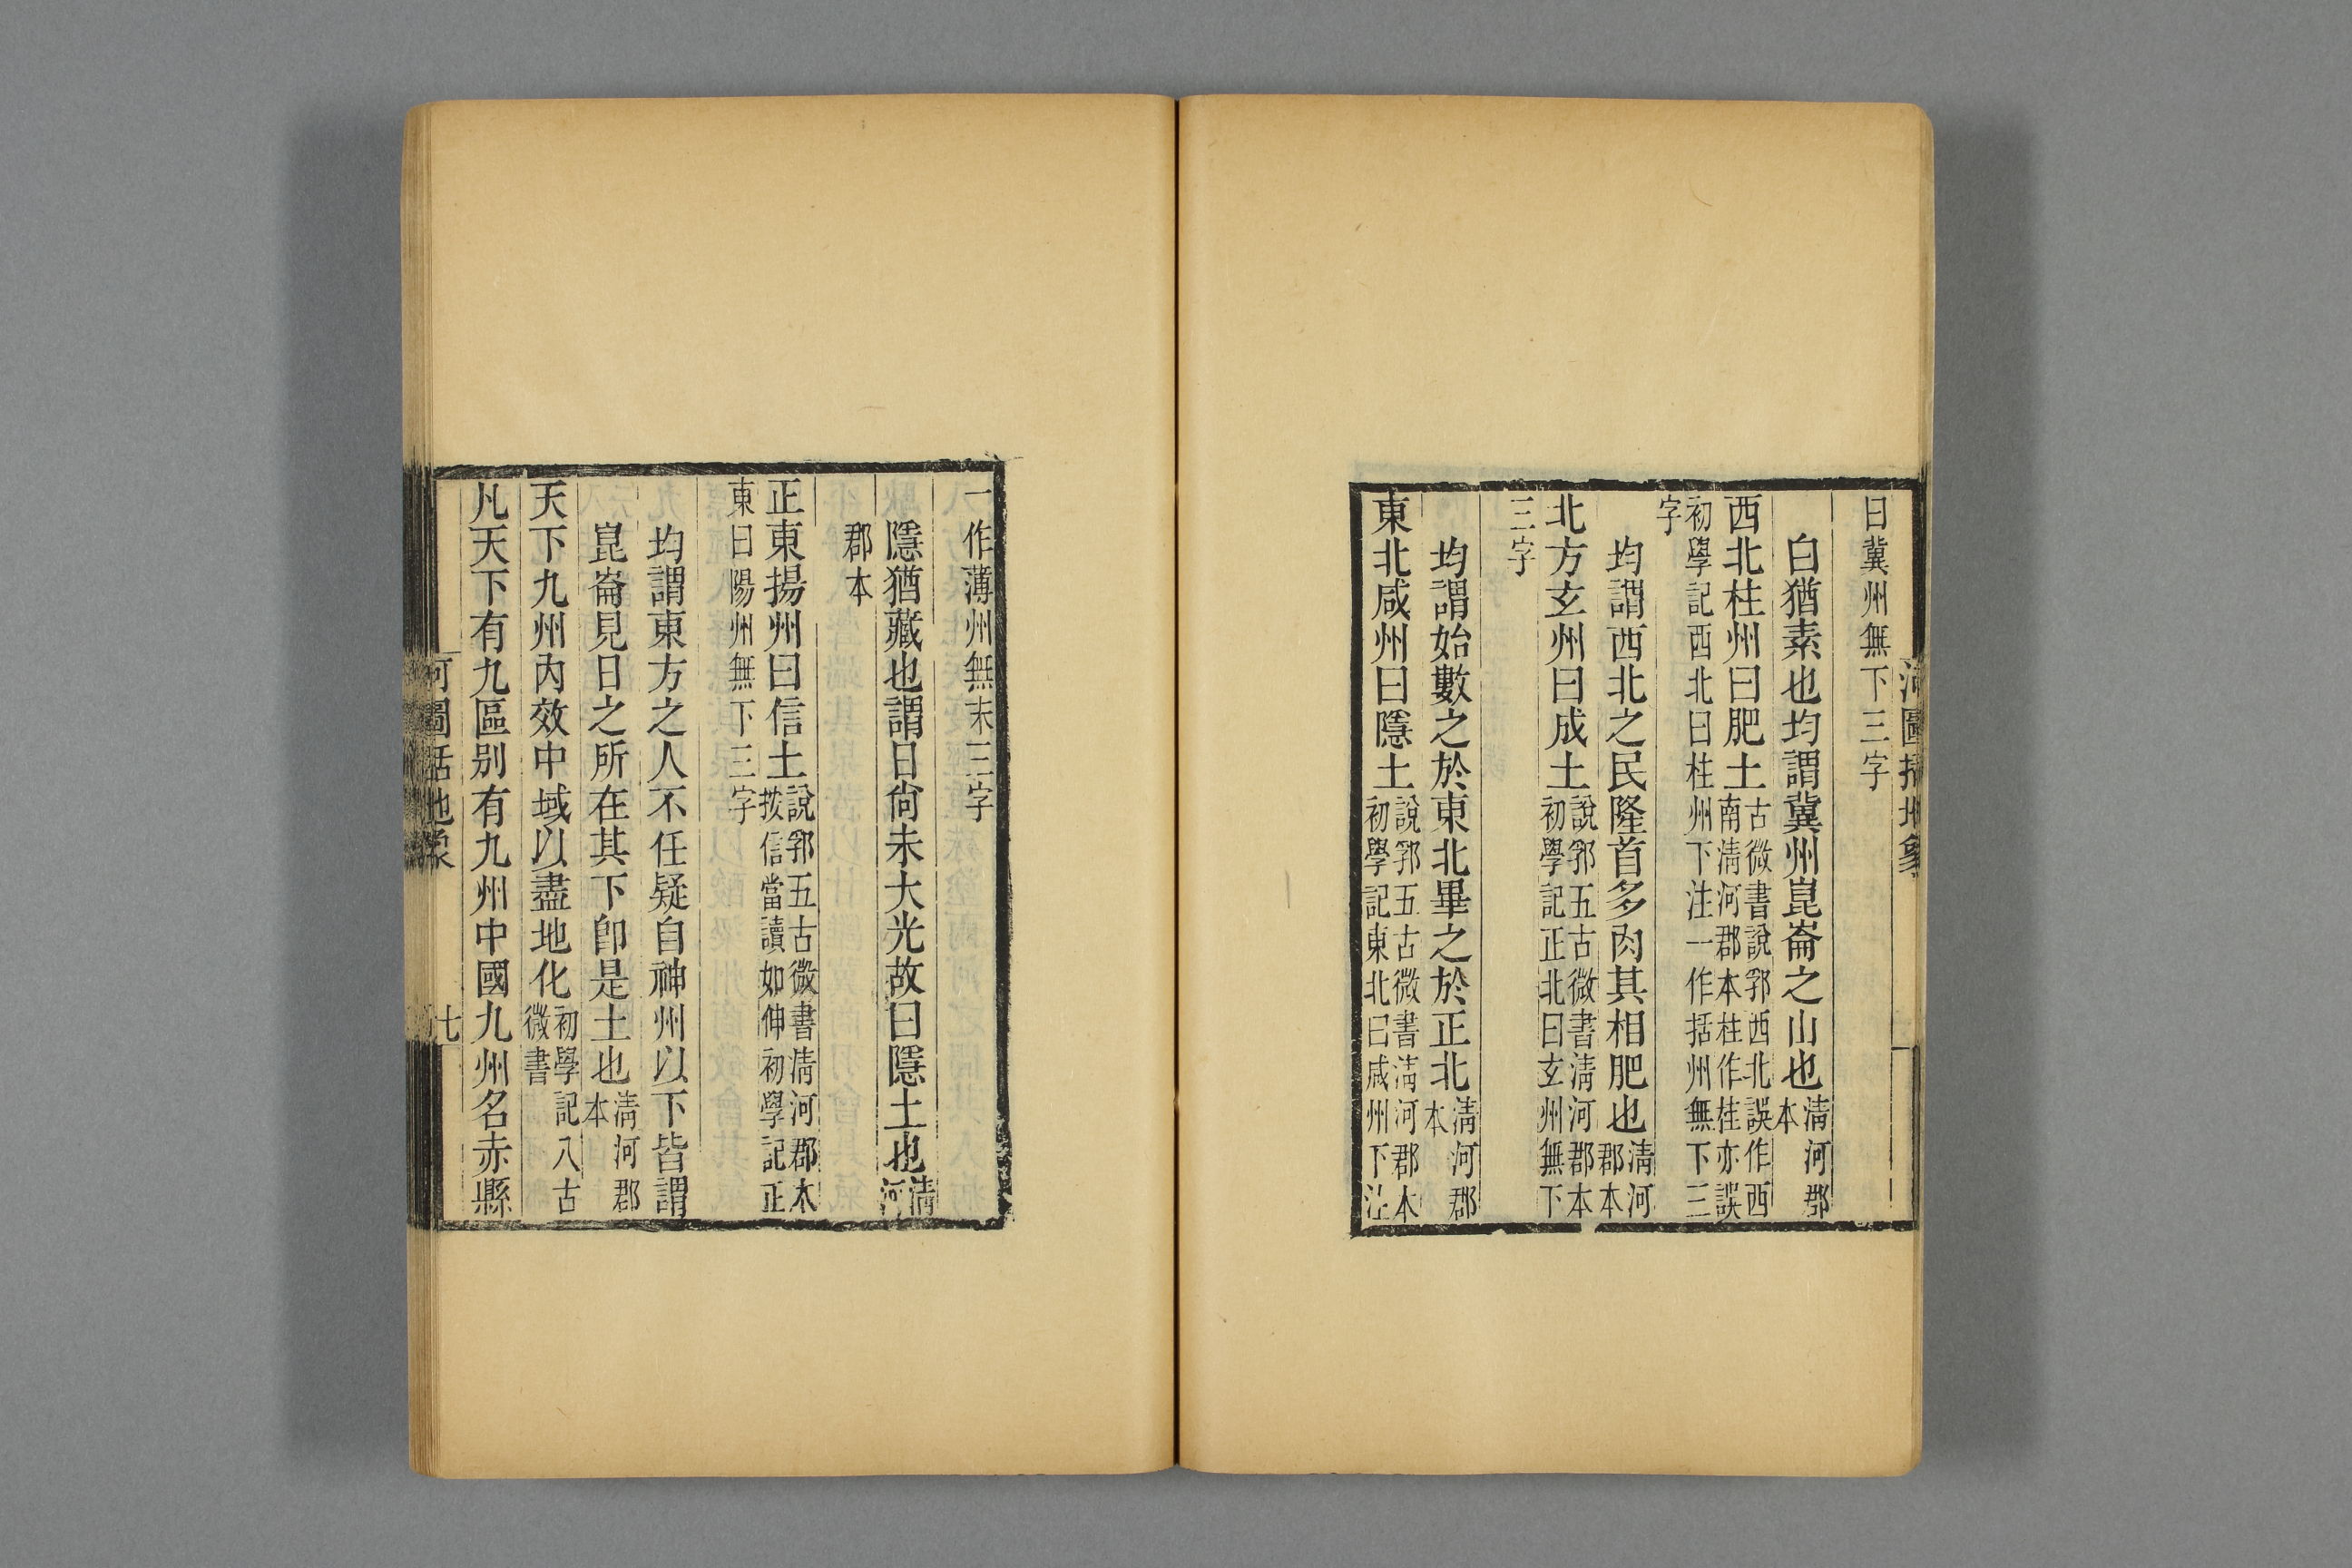 河圖括地象
曰冀州無下三字
白猶素也均謂冀州崑崙之山也清河郡本
西北柱州曰肥土古微書說郛西北誤作西南清河郡本柱作桂亦誤
初學記西北曰柱州下注一作括州無下三字
均謂西北之民隆首多肉其相肥也清河郡本
北方玄州曰成土說郛五古微書清河郡本初學記正北曰玄州無下
三字
均謂始數之於東北畢之於正北清河郡本
東北咸州曰隱土說郛五古微書清河郡本初學記東北曰咸州下注
一作薄州無末三字
隱猶藏也謂日尙未大光故曰隱土也清河
郡本
正東揚州曰信土說郛五古微書清河郡本按信當讀如伸初學記正
東曰陽州無下三字
均謂東方之人不任疑自神州以下皆謂
崑崙見日之所在其下卽是土也清河郡本
天下九州內效中域以盡地化初學記八古微書
凡天下有九區別有九州中國九州名赤縣
河圖括地象
七